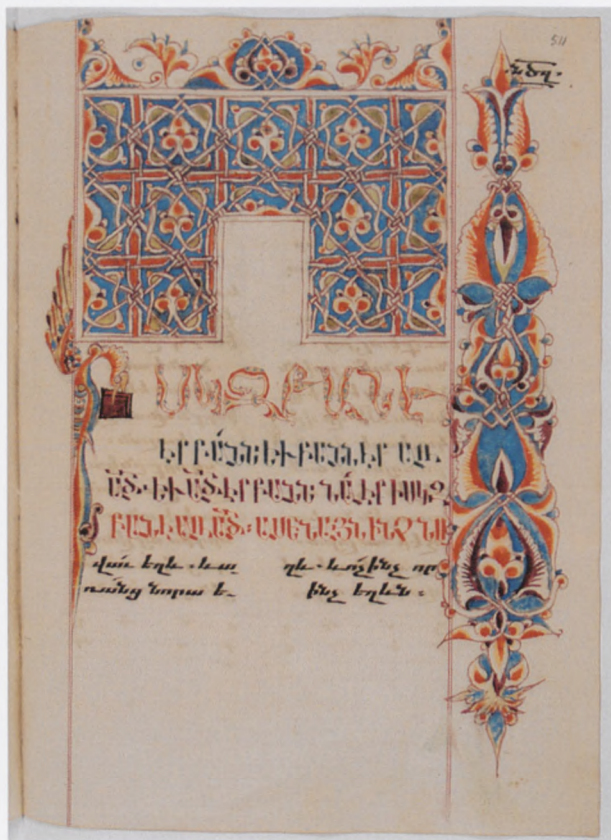 511
Ի ՍԿԶԲԱՆԷ
ԷՐ ԲԱՆՆ։ ԵՒ ԲԱՆՆ ԷՐ ԱՌ
ԱԾ· ԵՒ ԱԾ ԷՐ ԲԱՆՆ։ ՆԱ ԷՐ Ի ՍԿԶ
ԲԱՆԷ ԱՌ ԱԾ· ԱՄԵՆԱՅՆ ԻՆՉ ՆՈ
վաւ եղև · և ա
ռանց նորա ե
ղև · և ոչինչ որ
ինչ եղևն ։